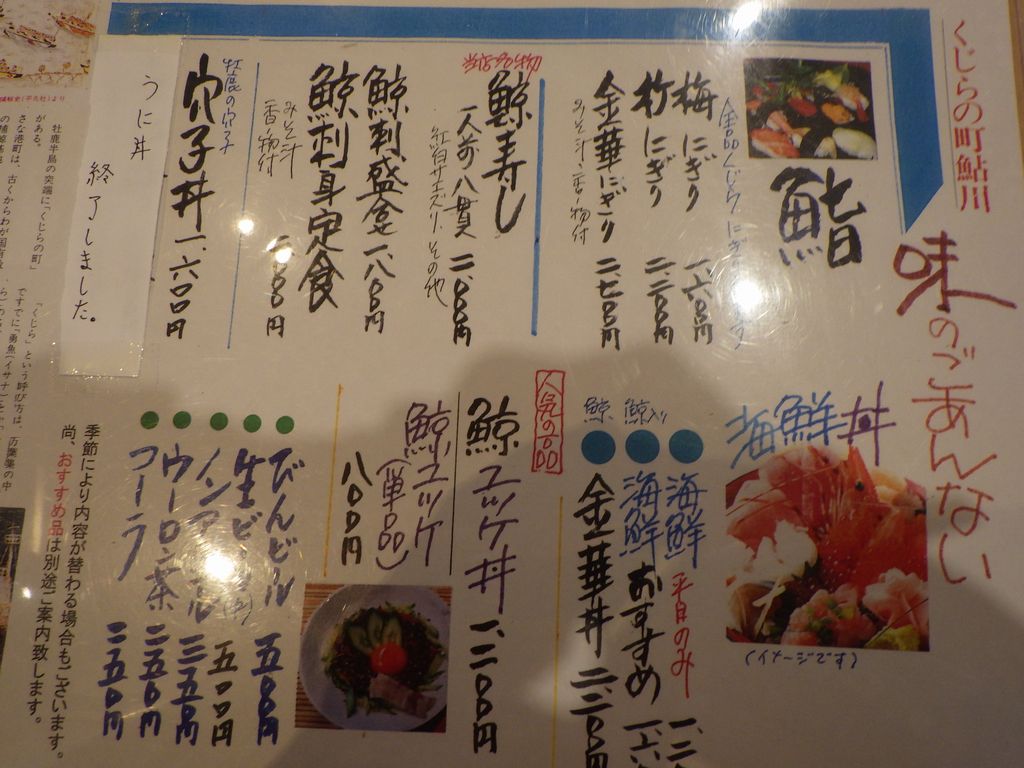 くじらの町鮎川
味のごあんない
鮨
全品くじらにぎ
梅にぎり 一、六〇〇円
竹にぎり 二、二〇〇円
金華にぎり 二、七〇〇円
みそ汁・香の物付
当店名物
鯨寿し
一人前八貫 二、〇〇〇円
紅白サエズリ、その他
鯨刺盛合 一、八〇〇円
鯨刺身定食
みそ汁
香の物付
二、〇〇〇円
牡鹿の穴子
穴子丼 一、六〇〇円
うに丼
終了しました。
海鮮丼
(イメージです)
海鮮 平日のみ 一、二
鯨入り
海鮮おすすめ 一、六
鯨
金華丼 二、二〇〇円
人気の一品
鯨ユッケ丼 一、二〇〇円
鯨ユッケ
(単品)
八〇〇円
びんビール 五五〇円
生ビ 五〇〇円
ノンアル 三五〇円
ウーロン茶 二五〇円
コーラ 二五〇円
季節により内容が替わる場合もございます。
尚、おすすめ品は別途ご案内致します。
牡鹿半島の突端に、「くじらの町」
がある。
さな港町は、古くからわが国有数
の捕鯨基地
「くじら」という呼び方は、
ですでに"勇魚(イサナ)"と